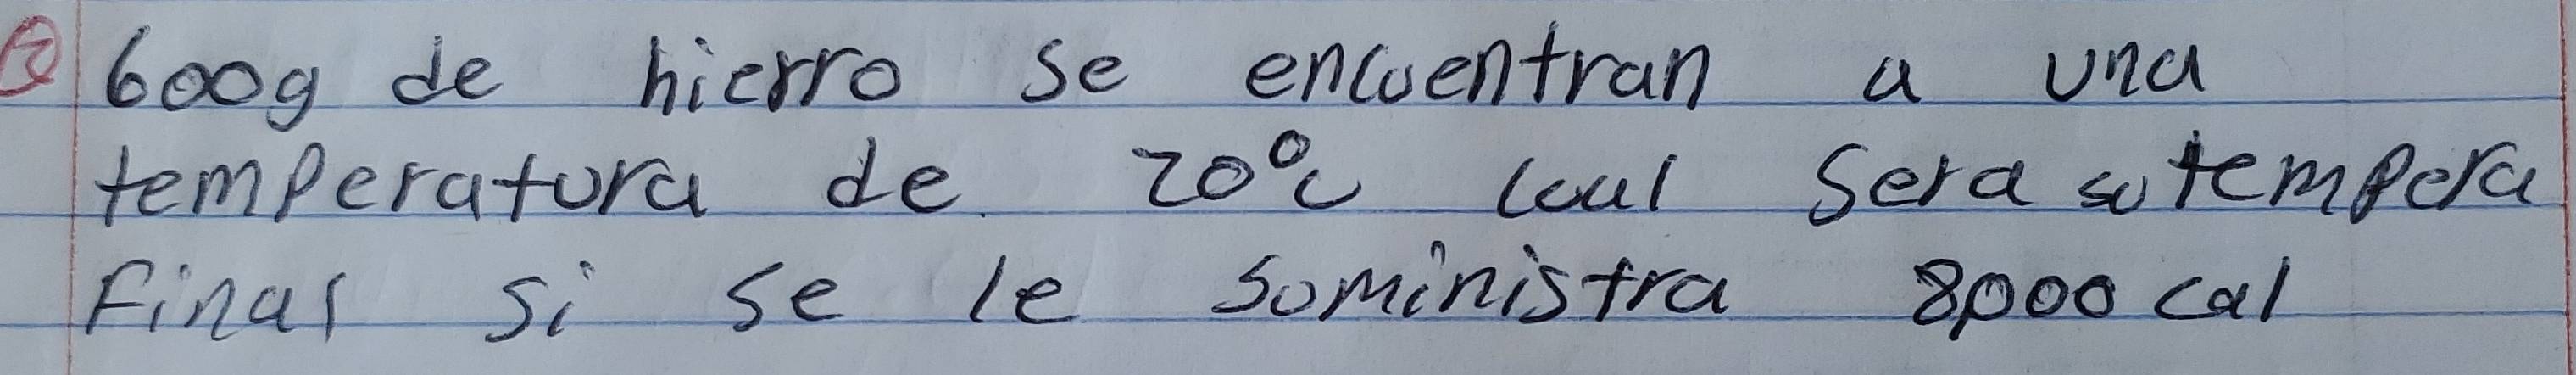 ② 600g de hierro se encuentran a una
temperatura de 20°c cual sera su tempera
Final si se le suministra 8000 cal